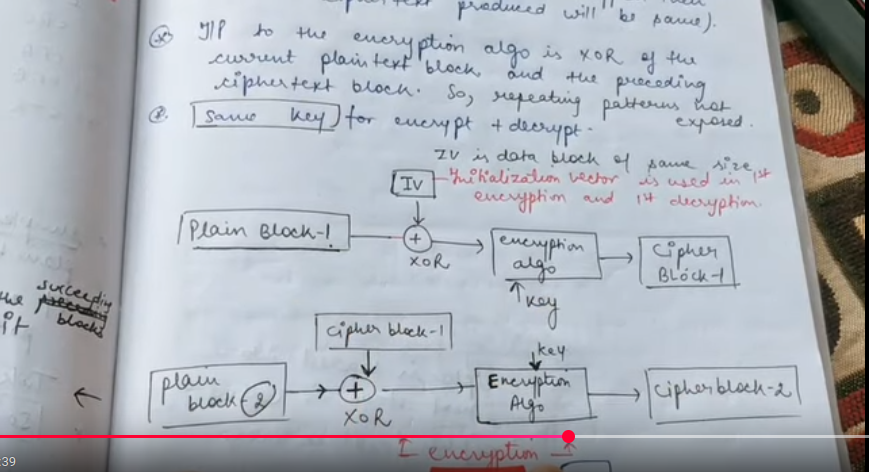 produced will be same).
I/P to the encryption algo is XOR of the
current plaintext block, and the preceding
ciphertext block. So, repeating patterns not
exposed.
Same Key for encrypt + decrypt.
IV is data block of same size.
IV
Initialization vector is used in 1st
encryption and 1st decryption.
Plain Block-1
+
XOR
encryption
algo
Key
Cipher
Block-1
succeeding
the preceding
it blocks
Cipher block-1
plain
block-2
+
XOR
key
Encryption
Algo
Cipherblock-2
encryption
:39